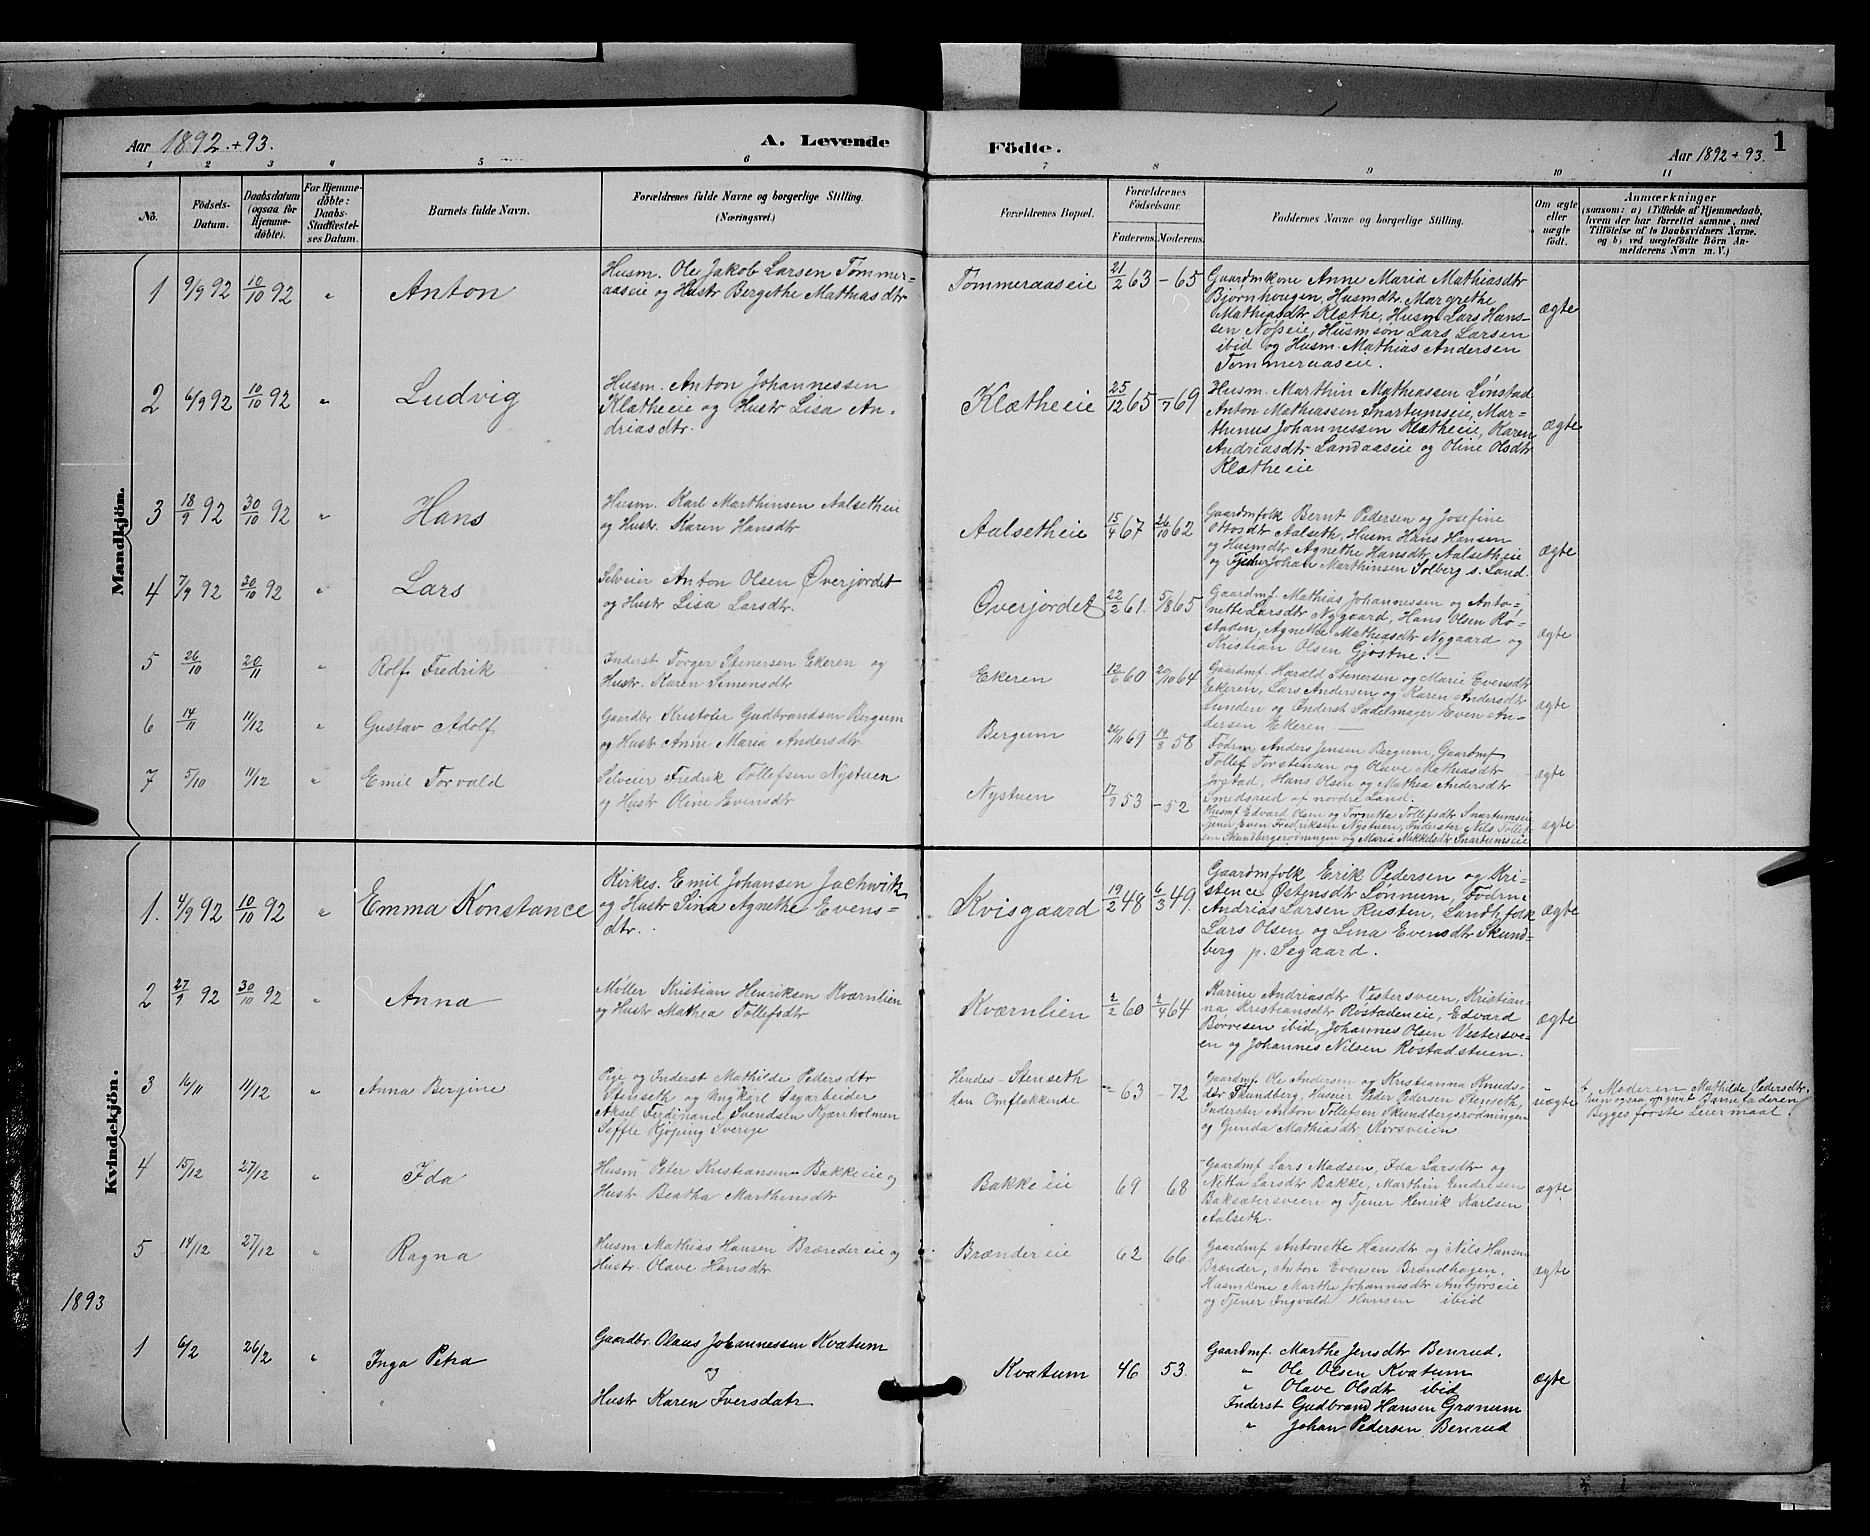 Aar 1892 + 93.
A. Levende
Födte.
Aar 1892 + 93.
1
1 2 3 4 5 6 7 8 9 10 11
No.
Födsels-
Datum.
Daabsdatum
(ogsaa for
Hjemme-
döbte).
For Hjemme-
döbte:
Daabs-
Stadfæstel-
ses Datum.
Barnets fulde Navn.
Forældrenes fulde Navne og borgerlige Stilling.
(Næringsvei.)
Forældrenes Bopæl.
Forældrenes
Födselsaar.
Faderens. Moderens.
Faddernes Navne og borgerlige Stilling.
Om ægte
eller
uægte
födt.
Anmærkninger
(saasom: a) i Tilfælde af Hjemmedaab,
hvem der har forrettet samme, med
Tilföielse af to Daabsvidners Navne.
og b) ved uægtefödte Börn An-
melderens Navn m. V.)
Mandkjön.
1 9/9 92 10/10 92 " Anton
Husm. Ole Jakob Larsen Tømmer-
aaseie og Hustr Bergithe Mathiasdtr
Tommeraaseie 21/2 63 - 65
Gaardmkone Anne Maria Mathiasdtr
Bjørnhougen, Husmdtr. Margrethe
Mathiasdtr Klæthe, Husm Lars Hans-
sen Nøsseie, Husmsøn Lars Larsen
ibid og Husm. Mathias Andersen
Tommeraaseie.
ægte
2 6/9 92 10/10 92 " Ludvig
Husm. Anton Johannessen
Klætheeie og Hustr Lisa An-
driasdtr.
Klætheeie 25/12 65 -/7 69
Husm. Marthin Mathiassen Lønstad
Anton Mathiassen Snartumseie, Mar-
thinus Johannessen Klætheie, Karen
Andriasdtr Landaaseie og Oline Olsdtr
Klætheeie
ægte
3 18/9 92 30/10 92 " Hans
Husm. Karl Marthinsen Aalsetheie
og Hustr. Karen Hansdtr
Aalsetheie 15/4 67 26/10 62
Gaardmfolk Bernt Pedersen og Josefine
Ottosdtr Aalseth, Husm Hans Hansen
og Husmdtr Agnethe Hansdtr Aalsetheie
og Tjener Johan Marthinsen Solberg s. Land.
ægte
4 7/9 92 30/10 92 " Lars
Selveier Anton Olsen Øverjordet
og Hustr Lisa Larsdtr.
Øverjordet 22/2 61. 5/8 65
Gaardmf. Mathias Johannessen og Anto-
nette Larsdtr Nygaard, Hans Olsen Rø-
staden, Agnethe Mathiasdtr Nygaard og
Kristian Olsen Gjøstne. —
ægte
5 26/10 20/11 " Rolf Fredrik
Inderst Torger Stenersen Ekeren og
Hustr. Karen Simensdtr
Ekeren 12/6 60 20/10 64
Gaardmf. Harald Stenersen og Marie Evensdtr
Ekeren, Lars Andersen og Karen Andersdtr
Lunden og Inderst Sadelmager Even An-
dersen Ekeren —
ægte
6 14/11 11/12 " Gustav Adolf
Gaardbr Kristofer Gudbrandsen Bergum
og Hustr Anne Maria Andersdtr
Bergum 26/11 69 19/3 58
Fodrm Anders Jensen Bergum, Gaardmf
Tollef Torstensen og Olave Mathiasdtr
Jostad, Hans Olsen og Mathea Andersdtr
Smedsrud af nordre Land.
ægte
7 5/10 11/12 " Emil Torvald
Selveier Fredrik Tollefsen Nystuen
og Hustr Oline Evensdtr
Nystuen 17/7 53 - 52
Husmf Edvard Olsen og Tornetta Tollefsdtr Snartumseie
Tjener Even Fredriksen Nystuen, Inderster Nils Tollef-
sen Skundbergsrødningen og Maria Mikkelsdtr Snartumseie
ægte
Kvindekjön.
1. 4/9 92 10/10 92 " Emma Konstance
Kirkes. Emil Johansen Jachwik
og Hustr Sina Agnethe Evens-
dtr.
Kvisgaard 19/2 48 6/3 49.
Gaardmfolk Erik Pedersen og Kri-
stence Østensdtr Lønnum, Fodrm
Andrias Larsen Rusten, Landh.folk
Lars Olsen og Lina Evensdtr Skund-
berg p. Segaard.
ægte
2 27/9 92 30/10 92 " Anna
Møller Kristian Henriksen Kværnlien
og Hustr Mathea Tollefsdtr
Kværnlien 2/2 60 2/4 64
Karine Andriasdtr Vestersveen, Kristian-
na, Kristiansdtr Rostadeneie, Edvard
Børresen ibid, Johannes Olsen Vestersve-
en og Johannes Nilsen Røstadstuen.
ægte
3 16/11 11/12 " Anna Bergine
Pige og Inderst Mathilde Pedersdtr
Stenseth og Ungkarl Sagarbeider
Aksel Ferdinand Svendsen Kjærholmen
Seffle Kjøping Sverige
Hendes - Stenseth
Han Omflakkende
- 63 - 72
Gaardmf Ole Andersen og Kristianna Knuds-
dtr Skundberg, Husmer Peder Pedersen Stenseth,
Inderster Anton Tollefsen Skundbergsrødningen
og Gunda Mathiasdtr Korsveien
uægte
b. Moderen Mathilde Pedersdtr,
hun ogsaa opgivet Barnefaderen
Begges første Leiermaal.
4 15/12 27/12 " Ida
Husm Peter Kristiansen Bakkeeie og
Hustr Beatha Marthinsdtr
Bakkeeie 69 68
Gaardmf Lars Madsen, Ida Larsdtr og
Netta Larsdtr Bakke, Marthin Endresen
Baksætersveen og Tjener Henrik Karlsen
Aalseth.
ægte
5 14/12 27/12 " Ragna
Husm Mathias Hansen Brændereie og
Hustr. Olave Hansdtr
Brændereie 62 66
Gaardmf Antonette Hansdtr og Nils Hansen
Brænder, Anton Evensen Brændhagen,
Husmkone Marthe Johannesdtr Ambjørseie
og Tjener Ingvald Hansen ibid
ægte
1893
1 6/2 26/2 " Inga Petra
Gaardbr. Olaus Johannessen Kvatum
og
Hustr Karen Iversdatr
Kvatum 46 53.
Gaardmf. Marthe Jensdtr Benrud.
" Ole Olsen Kvatum
" Olave Olsdtr ibid
Inderst Gudbrand Hansen Granum
" Johan Pedersen Benrud
ægte